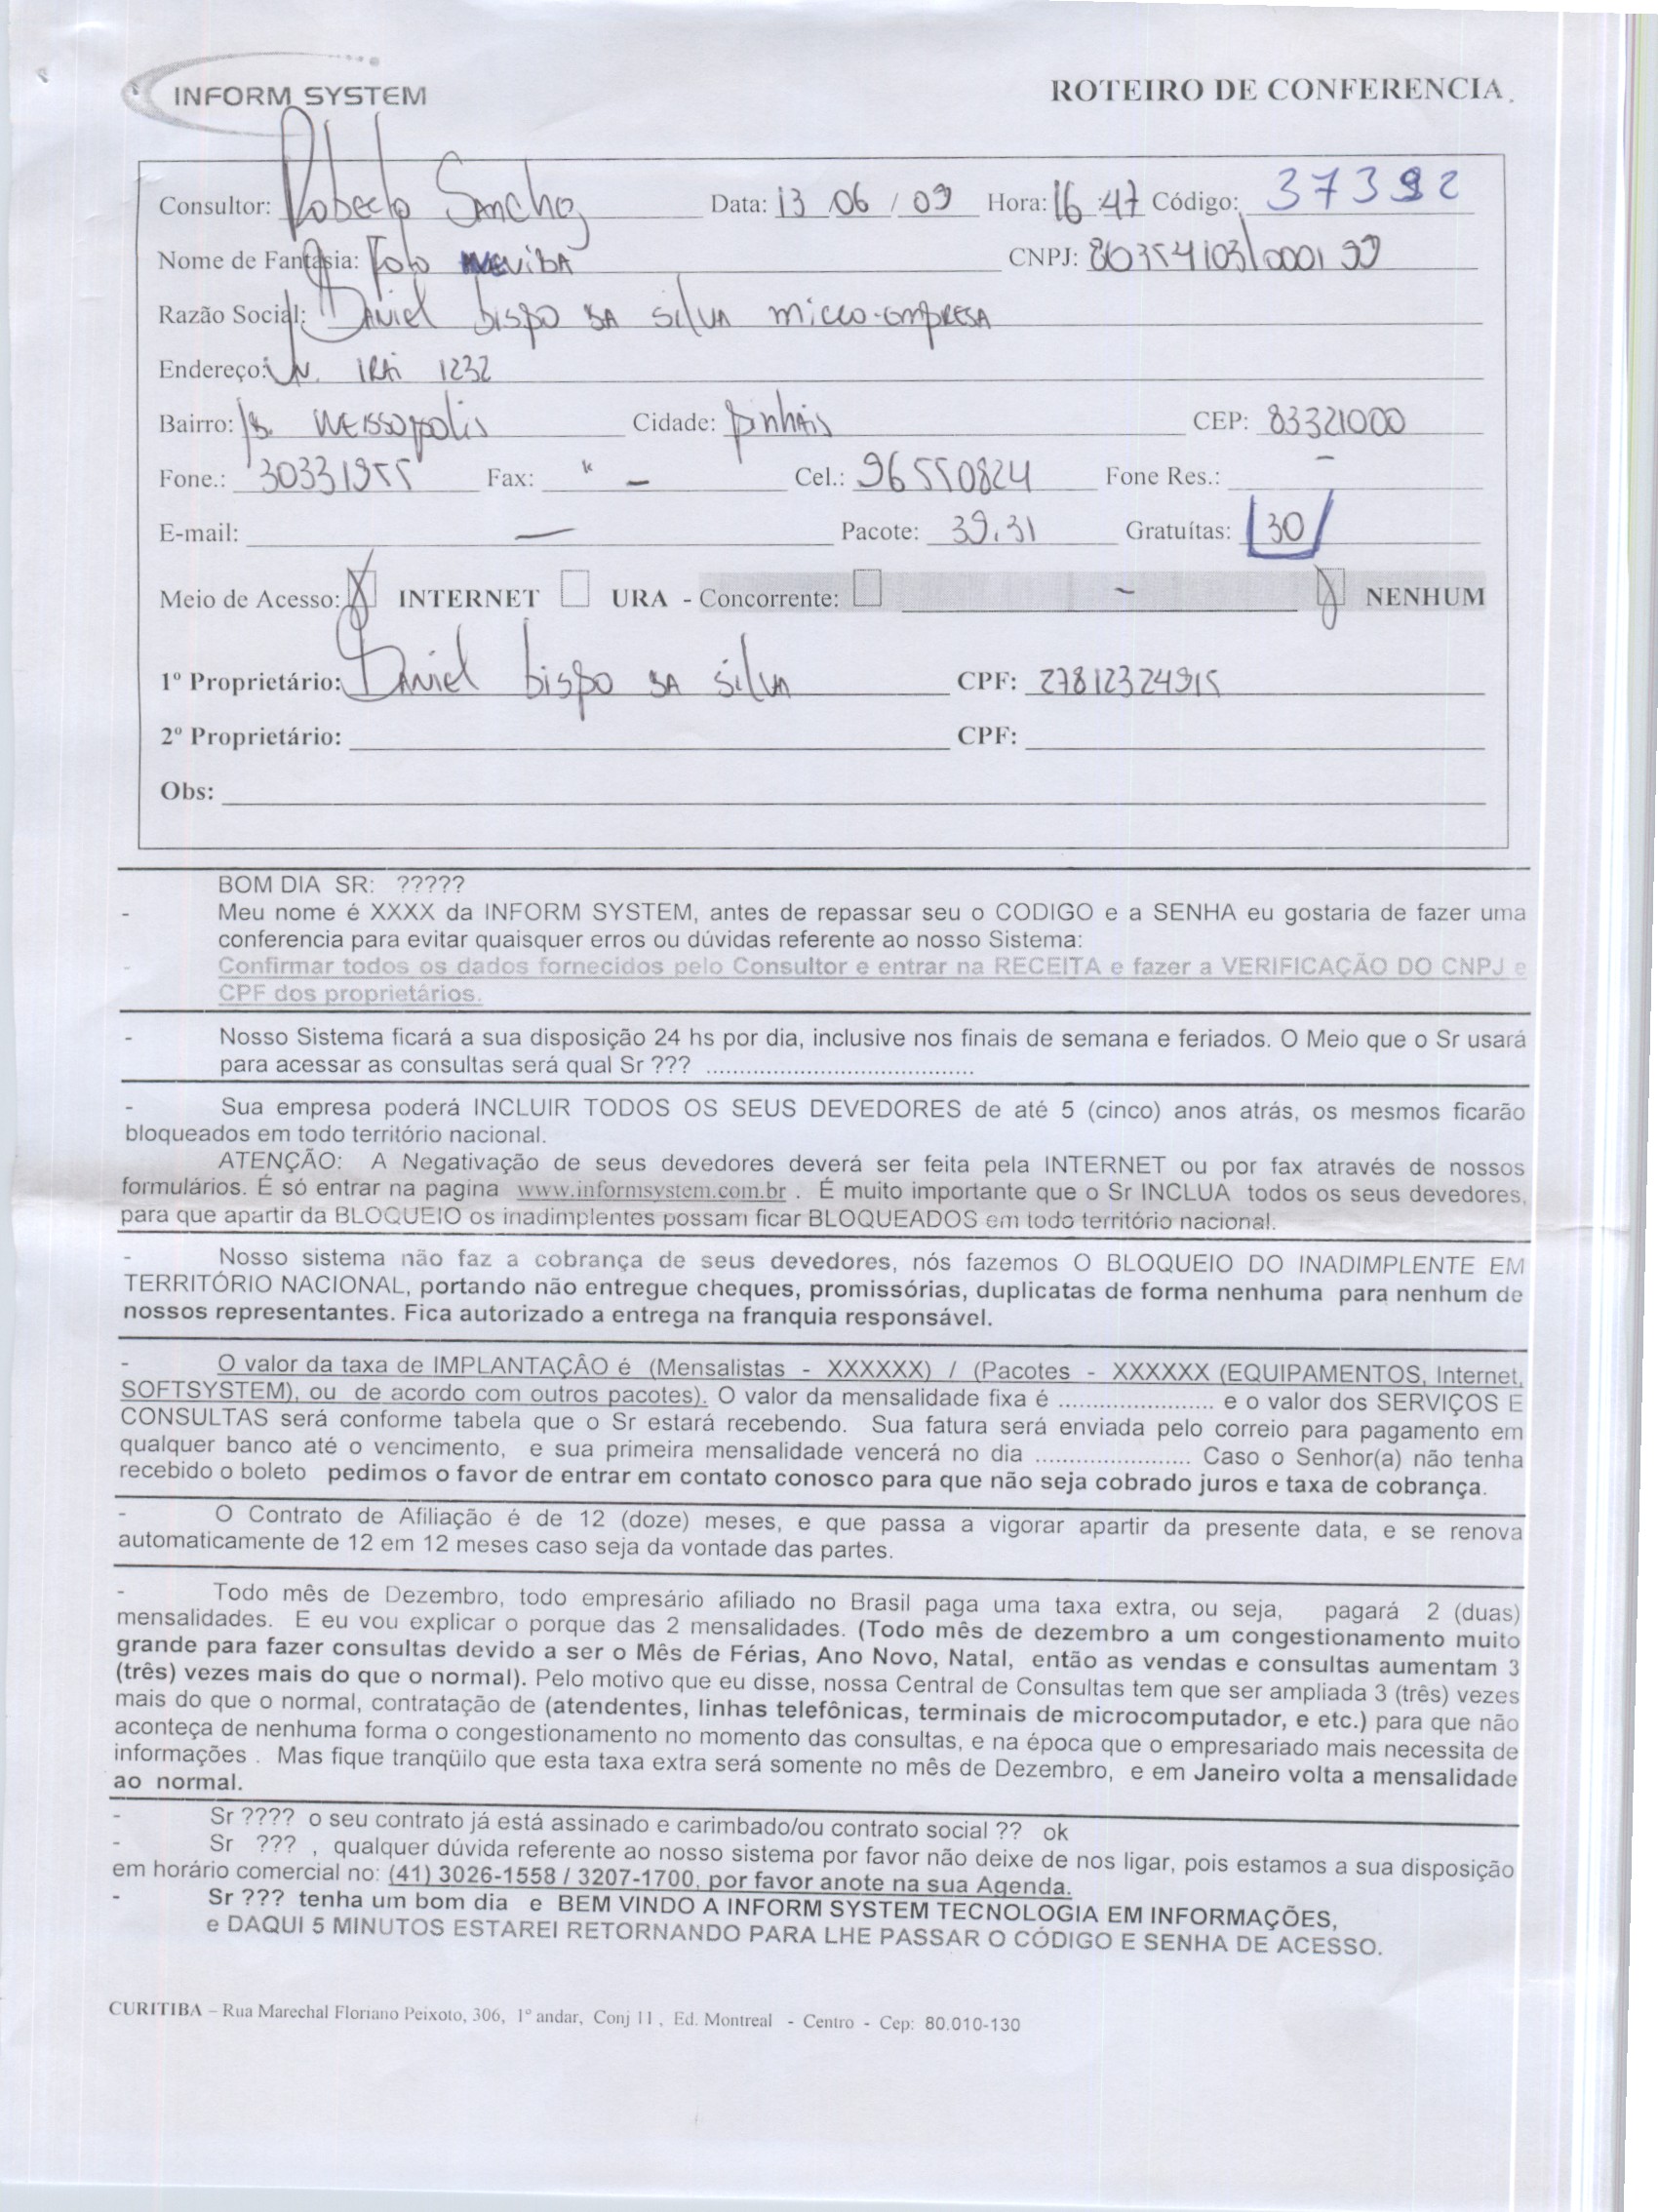 INFORM SYSTEM
ROTEIRO DE CONFERENCIA.
Consultor: Roberto Sanchez Data: 13 06 / 09 Hora: 16 47 Código: 37392
Nome de Fantasia: Foto CNPJ: 80354103/0001 99
Razão Social: Daniel bispo da silva micro-empresa
Endereço: Av. IRAi 1232
Bairro: Weissopolis Cidade: pinhais CEP: 83321000
Fone.: 30331955 Fax: " - Cel.: 96550824 Fone Res.: -
E-mail: — Pacote: 39,31 Gratuítas: 30
Meio de Acesso: X INTERNET URA - Concorrente: - X NENHUM
1º Proprietário: Daniel bispo da silva CPF: 27812324915
2º Proprietário: CPF:
Obs:
BOM DIA SR: ?????
- Meu nome é XXXX da INFORM SYSTEM, antes de repassar seu o CODIGO e a SENHA eu gostaria de fazer uma
conferencia para evitar quaisquer erros ou dúvidas referente ao nosso Sistema:
- Confirmar todos os dados fornecidos pelo Consultor e entrar na RECEITA e fazer a VERIFICAÇÃO DO CNPJ e
CPF dos proprietários.
- Nosso Sistema ficará a sua disposição 24 hs por dia, inclusive nos finais de semana e feriados. O Meio que o Sr usará
para acessar as consultas será qual Sr ??? .........................................
- Sua empresa poderá INCLUIR TODOS OS SEUS DEVEDORES de até 5 (cinco) anos atrás, os mesmos ficarão
bloqueados em todo território nacional.
ATENÇÃO: A Negativação de seus devedores deverá ser feita pela INTERNET ou por fax através de nossos
formulários. É só entrar na pagina www.informsystem.com.br . É muito importante que o Sr INCLUA todos os seus devedores,
para que apartir da BLOQUEIO os inadimplentes possam ficar BLOQUEADOS em todo território nacional.
- Nosso sistema não faz a cobrança de seus devedores, nós fazemos O BLOQUEIO DO INADIMPLENTE EM
TERRITÓRIO NACIONAL, portando não entregue cheques, promissórias, duplicatas de forma nenhuma para nenhum de
nossos representantes. Fica autorizado a entrega na franquia responsável.
- O valor da taxa de IMPLANTAÇÂO é (Mensalistas - XXXXXX) / (Pacotes - XXXXXX (EQUIPAMENTOS, Internet,
SOFTSYSTEM), ou de acordo com outros pacotes). O valor da mensalidade fixa é ....................... e o valor dos SERVIÇOS E
CONSULTAS será conforme tabela que o Sr estará recebendo. Sua fatura será enviada pelo correio para pagamento em
qualquer banco até o vencimento, e sua primeira mensalidade vencerá no dia ....................... Caso o Senhor(a) não tenha
recebido o boleto pedimos o favor de entrar em contato conosco para que não seja cobrado juros e taxa de cobrança.
- O Contrato de Afiliação é de 12 (doze) meses, e que passa a vigorar apartir da presente data, e se renova
automaticamente de 12 em 12 meses caso seja da vontade das partes.
- Todo mês de Dezembro, todo empresário afiliado no Brasil paga uma taxa extra, ou seja, pagará 2 (duas)
mensalidades. E eu vou explicar o porque das 2 mensalidades. (Todo mês de dezembro a um congestionamento muito
grande para fazer consultas devido a ser o Mês de Férias, Ano Novo, Natal, então as vendas e consultas aumentam 3
(três) vezes mais do que o normal). Pelo motivo que eu disse, nossa Central de Consultas tem que ser ampliada 3 (três) vezes
mais do que o normal, contratação de (atendentes, linhas telefônicas, terminais de microcomputador, e etc.) para que não
aconteça de nenhuma forma o congestionamento no momento das consultas, e na época que o empresariado mais necessita de
informações . Mas fique tranqüilo que esta taxa extra será somente no mês de Dezembro, e em Janeiro volta a mensalidade
ao normal.
- Sr ???? o seu contrato já está assinado e carimbado/ou contrato social ?? ok
- Sr ??? , qualquer dúvida referente ao nosso sistema por favor não deixe de nos ligar, pois estamos a sua disposição
em horário comercial no: (41) 3026-1558 / 3207-1700, por favor anote na sua Agenda.
- Sr ??? tenha um bom dia e BEM VINDO A INFORM SYSTEM TECNOLOGIA EM INFORMAÇÕES,
e DAQUI 5 MINUTOS ESTAREI RETORNANDO PARA LHE PASSAR O CÓDIGO E SENHA DE ACESSO.
CURITIBA – Rua Marechal Floriano Peixoto, 306, 1º andar, Conj 11 , Ed. Montreal - Centro - Cep: 80.010-130